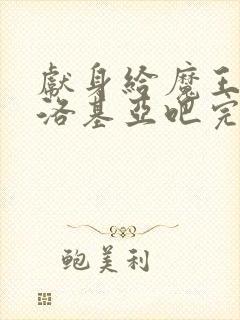 獻身給魔王
洛基亞吧完
鮑美利